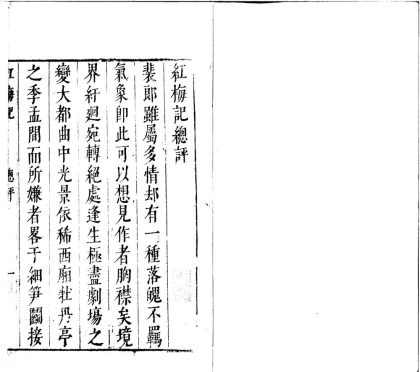 紅梅記總評
裴郎雖屬多情却有一種落魄不羈
氣象卽此可以想見作者胸襟矣境
界紆廻宛轉絕處逢生極盡劇塲之
變大都曲中光景依稀西廂牡丹亭
之季孟間而所嫌者畧于細笋鬪接
紅梅記　總評　一